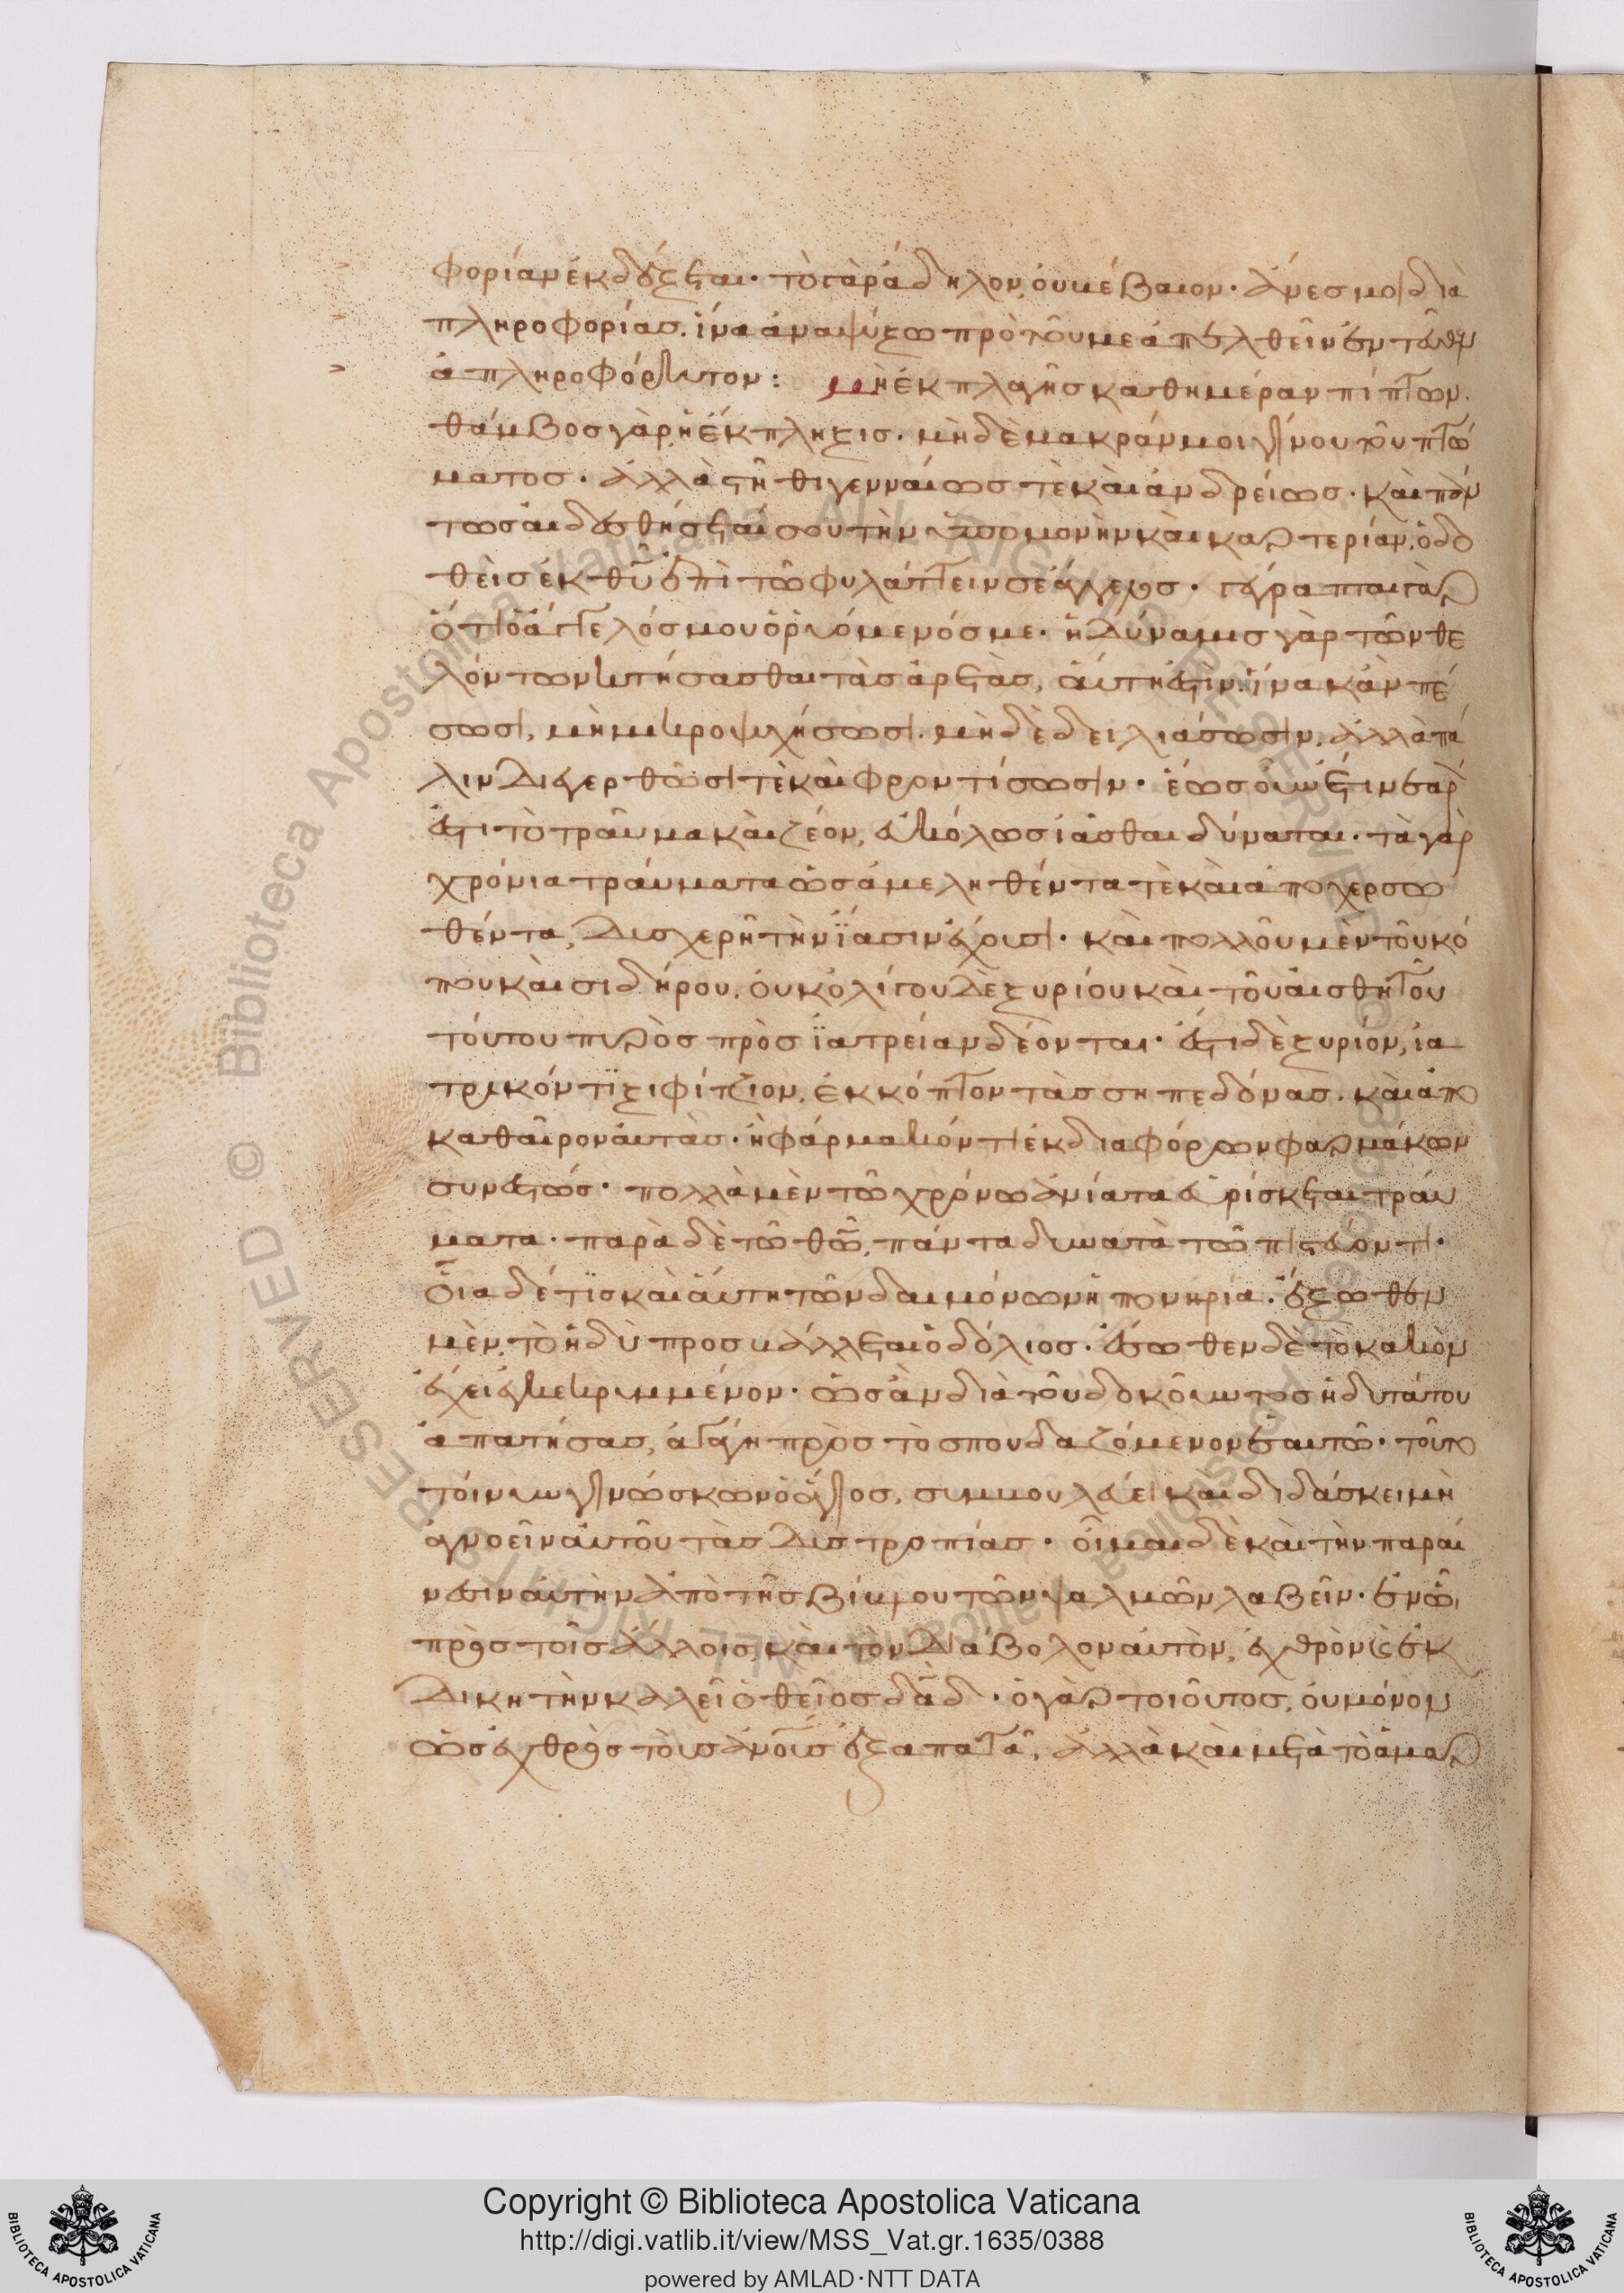 φορίαν ἐκδέξεται· τὸ γὰρ ἄδηλον, οὐ βέβαιον· ἄνες μοι διὰ
πληροφορίας, ἵνα ἀναψύξω πρὸ τοῦ με ἀπελθεῖν ἐντεῦθεν
ἀπληροφόρητον: μὴ ἐκπλαγῆς καθημέραν πίπτων.
θάμβος γὰρ, ἡ ἔκπληξις. μὴ δὲ μακράν μοι γίνου τοῦ πτώ
ματος· ἀλλὰ στῆθι γενναίως τὲ καὶ ἀνδρείως· καὶ πάν
τως αἰδεσθήσεταί σου τὴν ὑπομονὴν καὶ καρτερίαν, ὁ δο
θεὶς ἐκ θῦ ἐπὶ τῶ φυλάττειν σε ἄγγελος· γέγραπται γὰρ
ὅτι ὁ ἄγγελός μου ὁ ῥυόμενός με· ἡ δύναμις γὰρ τῶν θε
λόντων κτήσασθαι τὰς ἀρετὰς, αὕτη ἐστὶν· ἵνα κἂν πέ
σωσι, μὴ μικροψυχήσωσι. μὴ δὲ δειλιάσωσιν, ἀλλὰ πά
λιν διεγερθῶσι τὲ καὶ φροντίσωσιν· ἕως οὖν ἔτι νεαρόν
ἐστι τὸ τραῦμα καὶ ζέον, εὐκόλως ἰᾶσθαι δύναται· τὰ γὰρ
χρόνια τραύματα ὡς ἀμεληθέντα τὲ καὶ ἀποχερσω
θέντα, δυσχερῆ τὴν ἴασιν ἔχουσι· καὶ πολλοῦ μὲν τοῦ κό
που καὶ σιδήρου. οὐκ ὀλίγου δὲ ξυρίου καὶ τοῦ αἰσθητοῦ
τούτου πυρὸς πρὸς ἰατρείαν δέονται· ἔστι δὲ ξυρίον, ἰα
τρικόν τι ξιφίτζιον, ἐκκόπτον τὰς σηπεδόνας. καὶ ἀπο
καθαῖρον αὐτὰς· ἢ φάρμακόν τι ἐκ διαφόρων φαρμάκων
συνεστώς· πολλὰ μὲν τῶ χρόνω ἀνίατα εὑρίσκεται τραύ
ματα· παρὰ δὲ τῶ θῶ, πάντα δυνατὰ τῶ πιστεύοντι·
οἵα δέ τις καὶ αὕτη τῶν δαιμόνων ἡ πονηρία. ἔξωθεν
μὲν, τὸ ἡδὺ προσβάλλεται ὁ δόλιος. ἔσωθεν δὲ τὸ κακὸν
ἔχει ἐγκεκρυμμένον· ὡς ἂν διὰ τοῦ δοκοῦντος ἡδυτάτου
ἀπατήσας, ἀγάγη πρὸς τὸ σπουδαζόμενον ἑαυτῶ· τοῦτο
τοίνυν γινώσκων ὁ ἅγιος, συμβουλεύει καὶ διδάσκει μὴ
ἀγνοεῖν αὐτοῦ τὰς δυστροπίας· οἶμαι δὲ καὶ τὴν παραί
νεσιν αὐτὴν ἀπὸ τῆς βίβλου τῶν ψαλμῶν λαβεῖν· ἐν ᾧ,
πρὸς τοῖς ἄλλοις, καὶ τὸν διάβολον αὐτὸν, ἐχθρὸν καὶ ἐκ
δικητὴν καλεῖ ὁ θεῖος δᾶδ· ὁ γὰρ τοιοῦτος, οὐ μόνον
ὡς ἐχθρὸς τοὺς ἀνους ἐξαπατᾶ, ἀλλὰ καὶ μετὰ τὸ ἁμαρ
Copyright © Biblioteca Apostolica Vaticana
http://digi.vatlib.it/view/MSS_Vat.gr.1635/0388
powered by AMLAD·NTT DATA